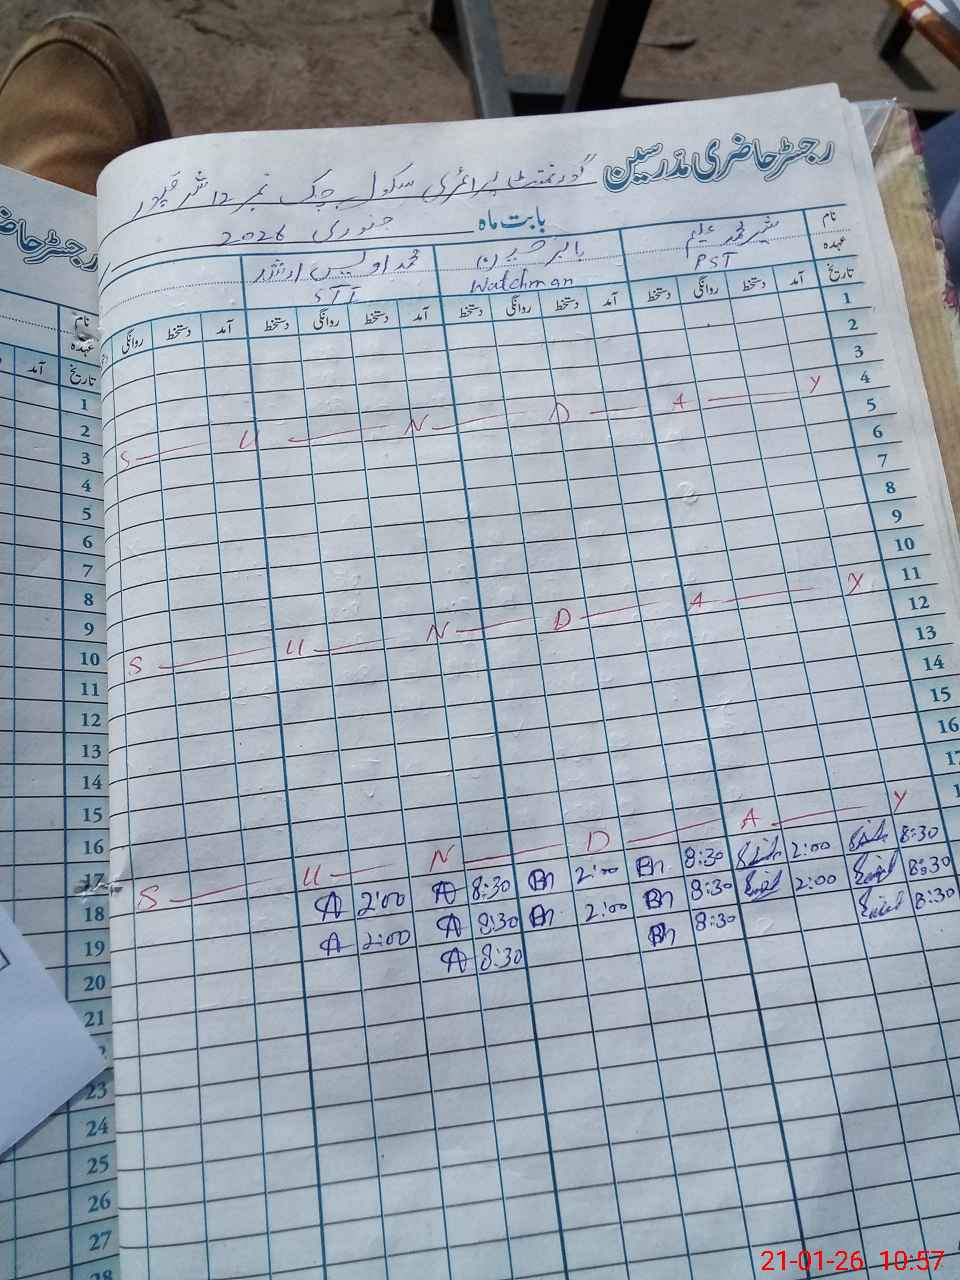 رجسٹر حاضری مدرسین
گورنمنٹ پرائمری سکول چک نمبر 12
بابت ماہ جنوری 2026
نام شیر محمد علیم بابر حسین محمد اویس ارشد
عہدہ PST Watchman STT
تاریخ آمد دستخط روانگی دستخط آمد دستخط روانگی دستخط آمد دستخط روانگی دستخط آمد دستخط روانگی
1
2
3
4
S U N D A Y
5
6
7
8
9
10
11
S U N D A Y
12
13
14
15
16
17
S U N D A Y
8:30 2:00 8:30 2:00 8:30 2:00
8:30 2:00 8:30 2:00 8:30 2:00
8:30 8:30 8:30
رجسٹر حاضری
نام
عہدہ
تاریخ آمد
1
2
3
4
5
6
7
8
9
10
11
12
13
14
15
16
17
18
19
20
21
23
24
25
26
27
28
21-01-26 10:57